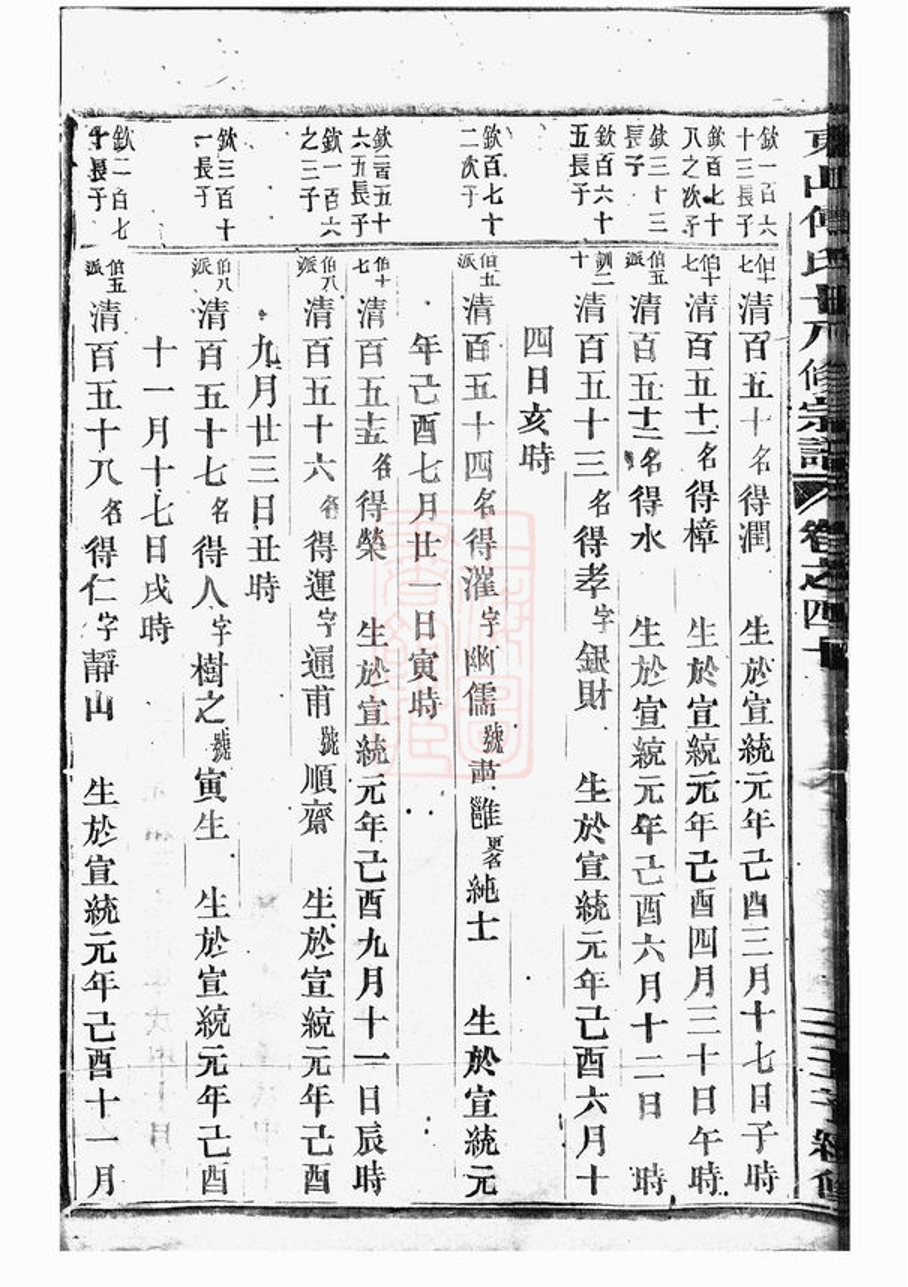 東山傅氏十八修宗譜 卷之四十
欽一百六十三長子
伯十七 清百五十 名得潤 生於宣統元年己酉三月十七日子時
欽百七十八之次子
伯十七 清百五十一 名得樟 生於宣統元年己酉四月三十日午時
欽三十三長子
伯五派 清百五十二 名得水 生於宣統元年己酉六月十二日 時
欽百六十五長子
訓二十 清百五十三 名得孝 字銀財 生於宣統元年己酉六月十
四日亥時
欽百七十二次子
伯五派 清百五十四 名得濯 字幽儒 號肅雝 更名純士 生於宣統元
年己酉七月廿一日寅時
欽二百五十六五長子
伯十七 清百五十五 名得榮 生於宣統元年己酉九月十一日辰時
欽一百六之三子
伯八派 清百五十六 名得運 字通甫 號順齋 生於宣統元年己酉
九月廿三日丑時
欽三百十一長子
伯八派 清百五十七 名得人 字樹之 號寅生 生於宣統元年己酉
十一月十七日戌時
欽二百七十長子
伯五派 清百五十八 名得仁 字靜山 生於宣統元年己酉十一月